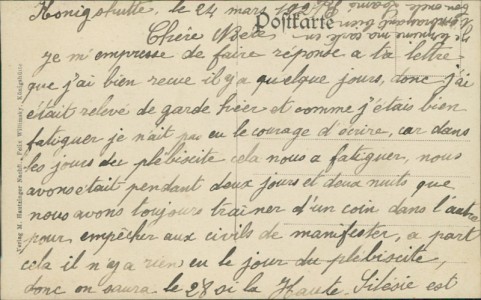 Königshutte, le 24 mars 1921
Postkarte
Chère
je m'empresse de faire réponse a ta lettre
que j'ai bien reçue il y a quelque jours, donc j'ai
était relevé de garde hier et comme j'étais bien
fatiguer je n'ait pas eu le courage d'écrire, car dans
les jours du plébiscite cela nous a fatiguer, nous
avons était pendant deux jours et deux nuits que
nous avons toujours trainer d'un coin dans l'autre
pour empêcher aux civils de manifester, a part
cela il n'y a rien eu le jour du plébiscite,
donc on saura le 28 si la Haute Silésie est
Verlag M. Hantzinger Nachf., Felix Wittinsky, Königshütte